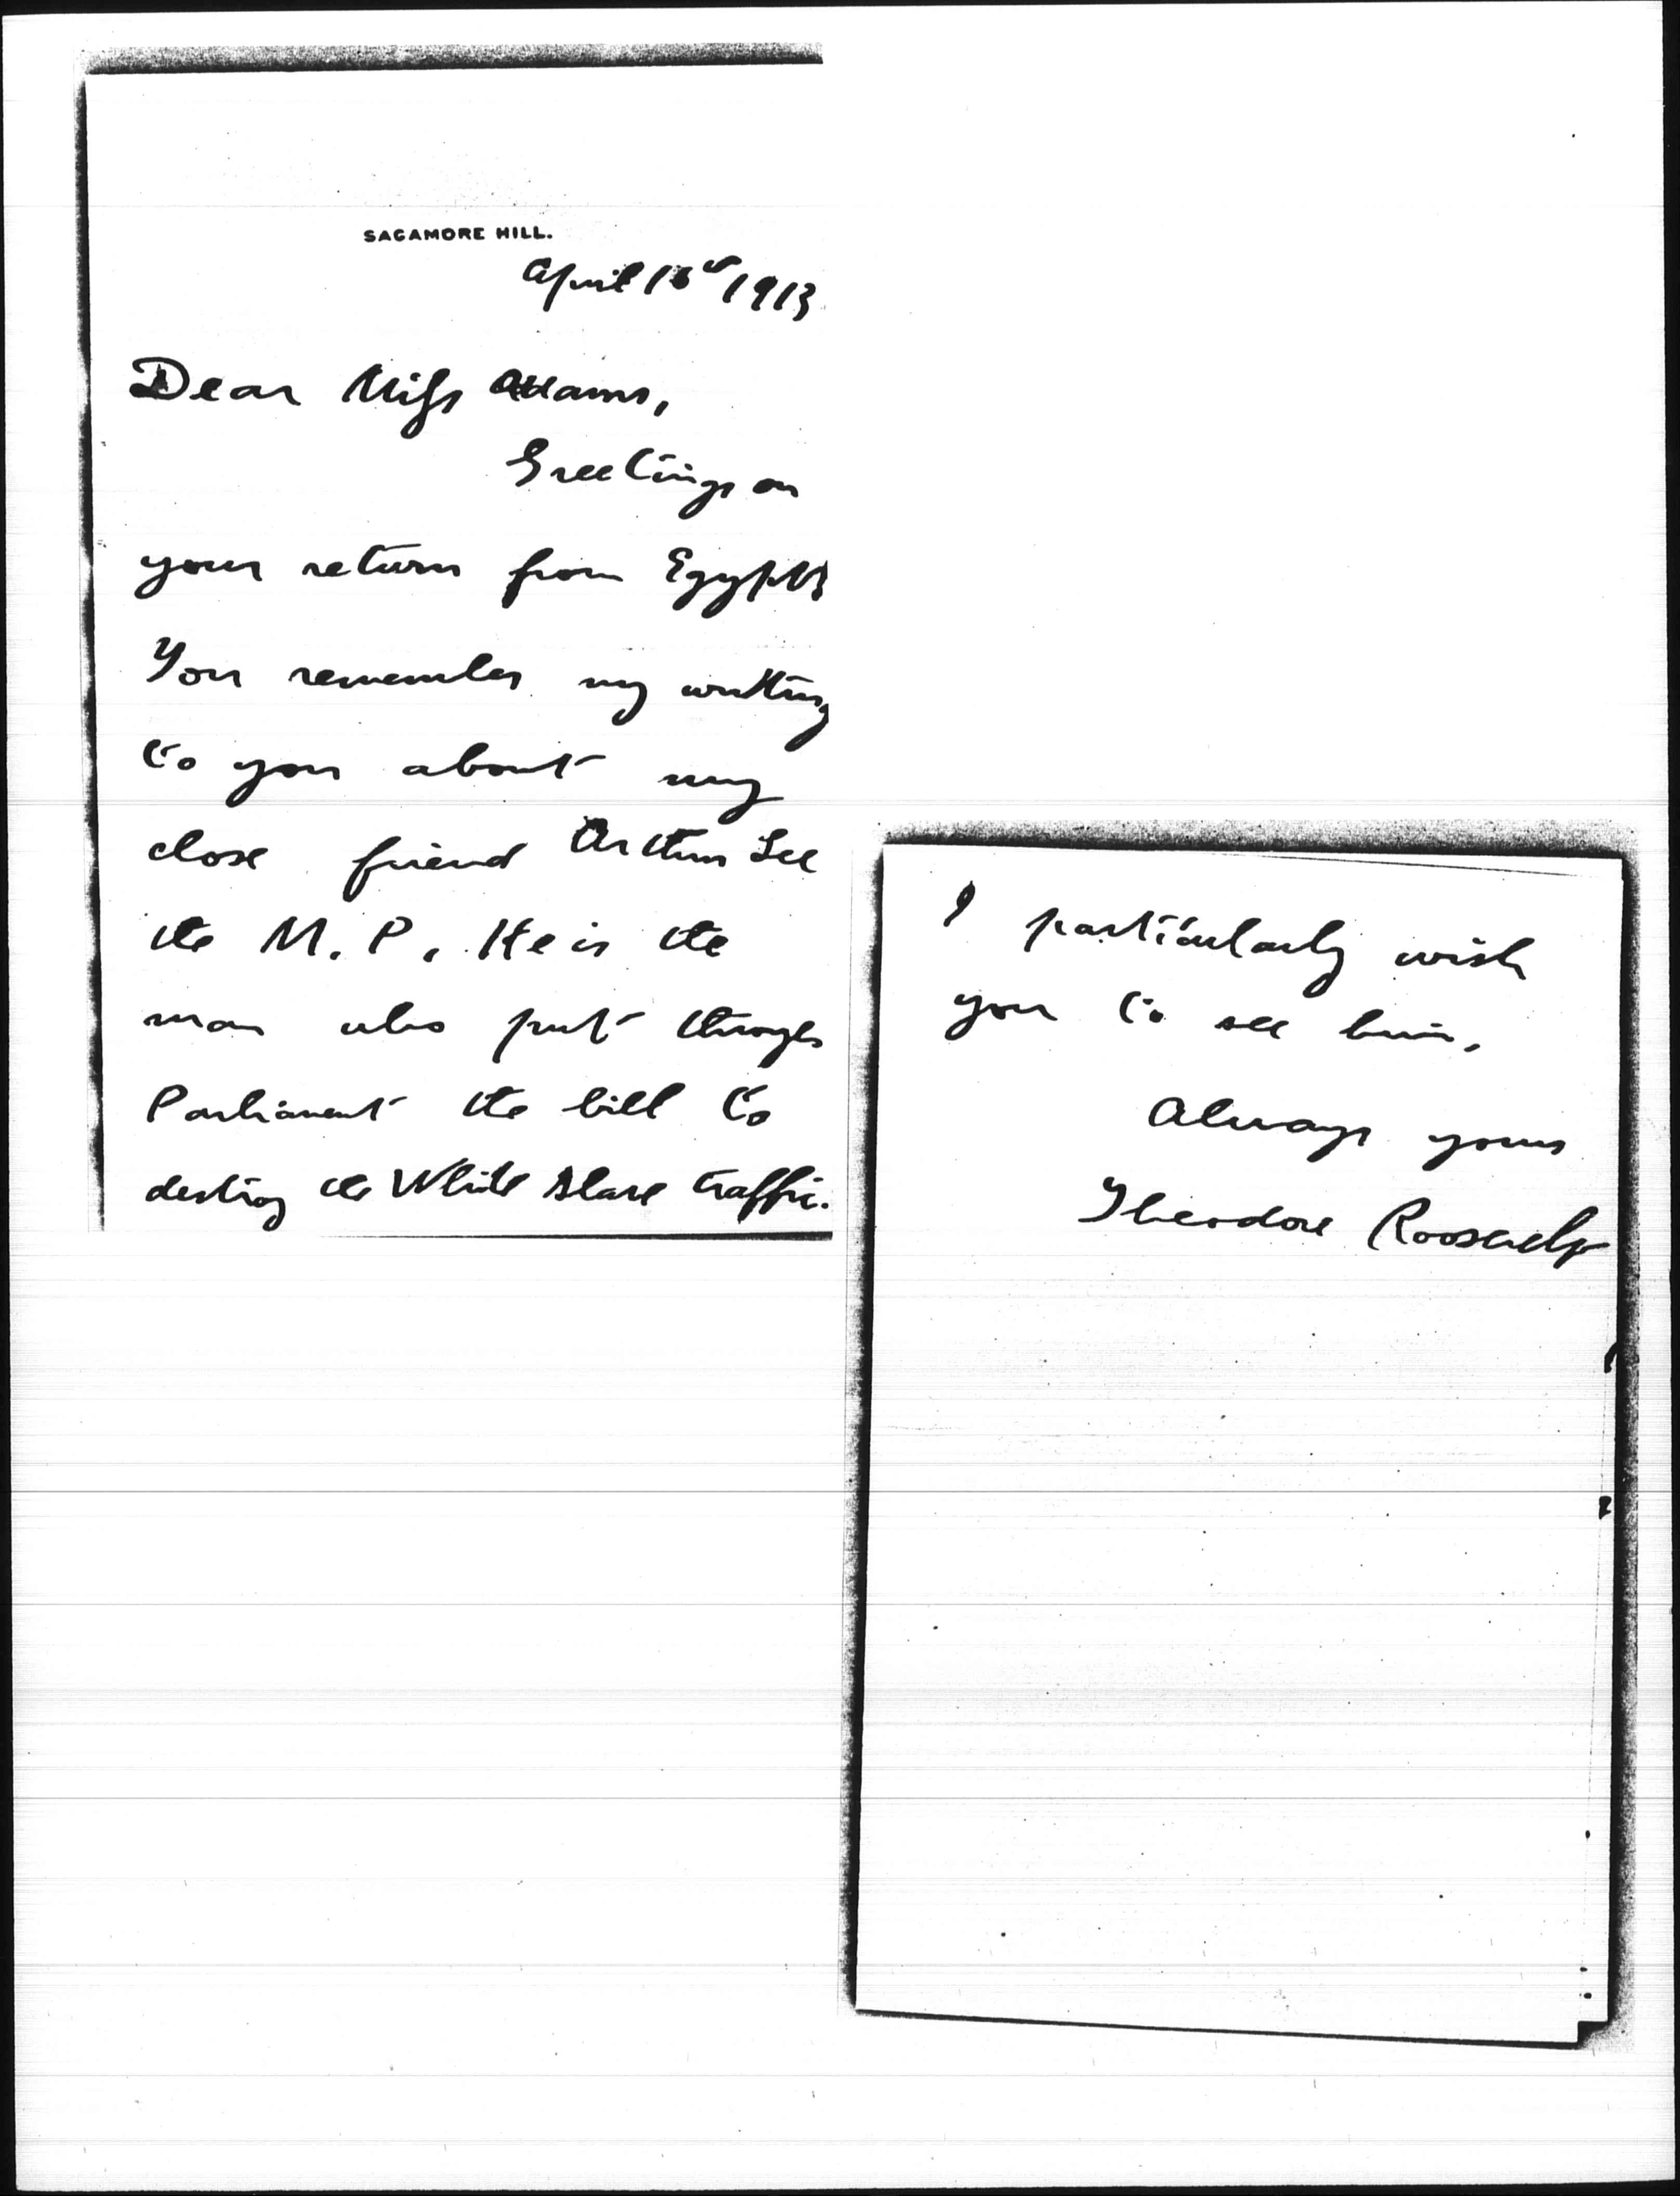 SAGAMORE HILL.
April 1913
Dear Miss Addams,
Greetings on
your return from Egypt!
You remember my writing
to you about my
close friend Arthur Lee
the M.P. He is the
man who put through
Parliament the bill to
destroy the White Slave traffic.
I particularly wish
you to see him.
Always yours
Theodore Roosevelt